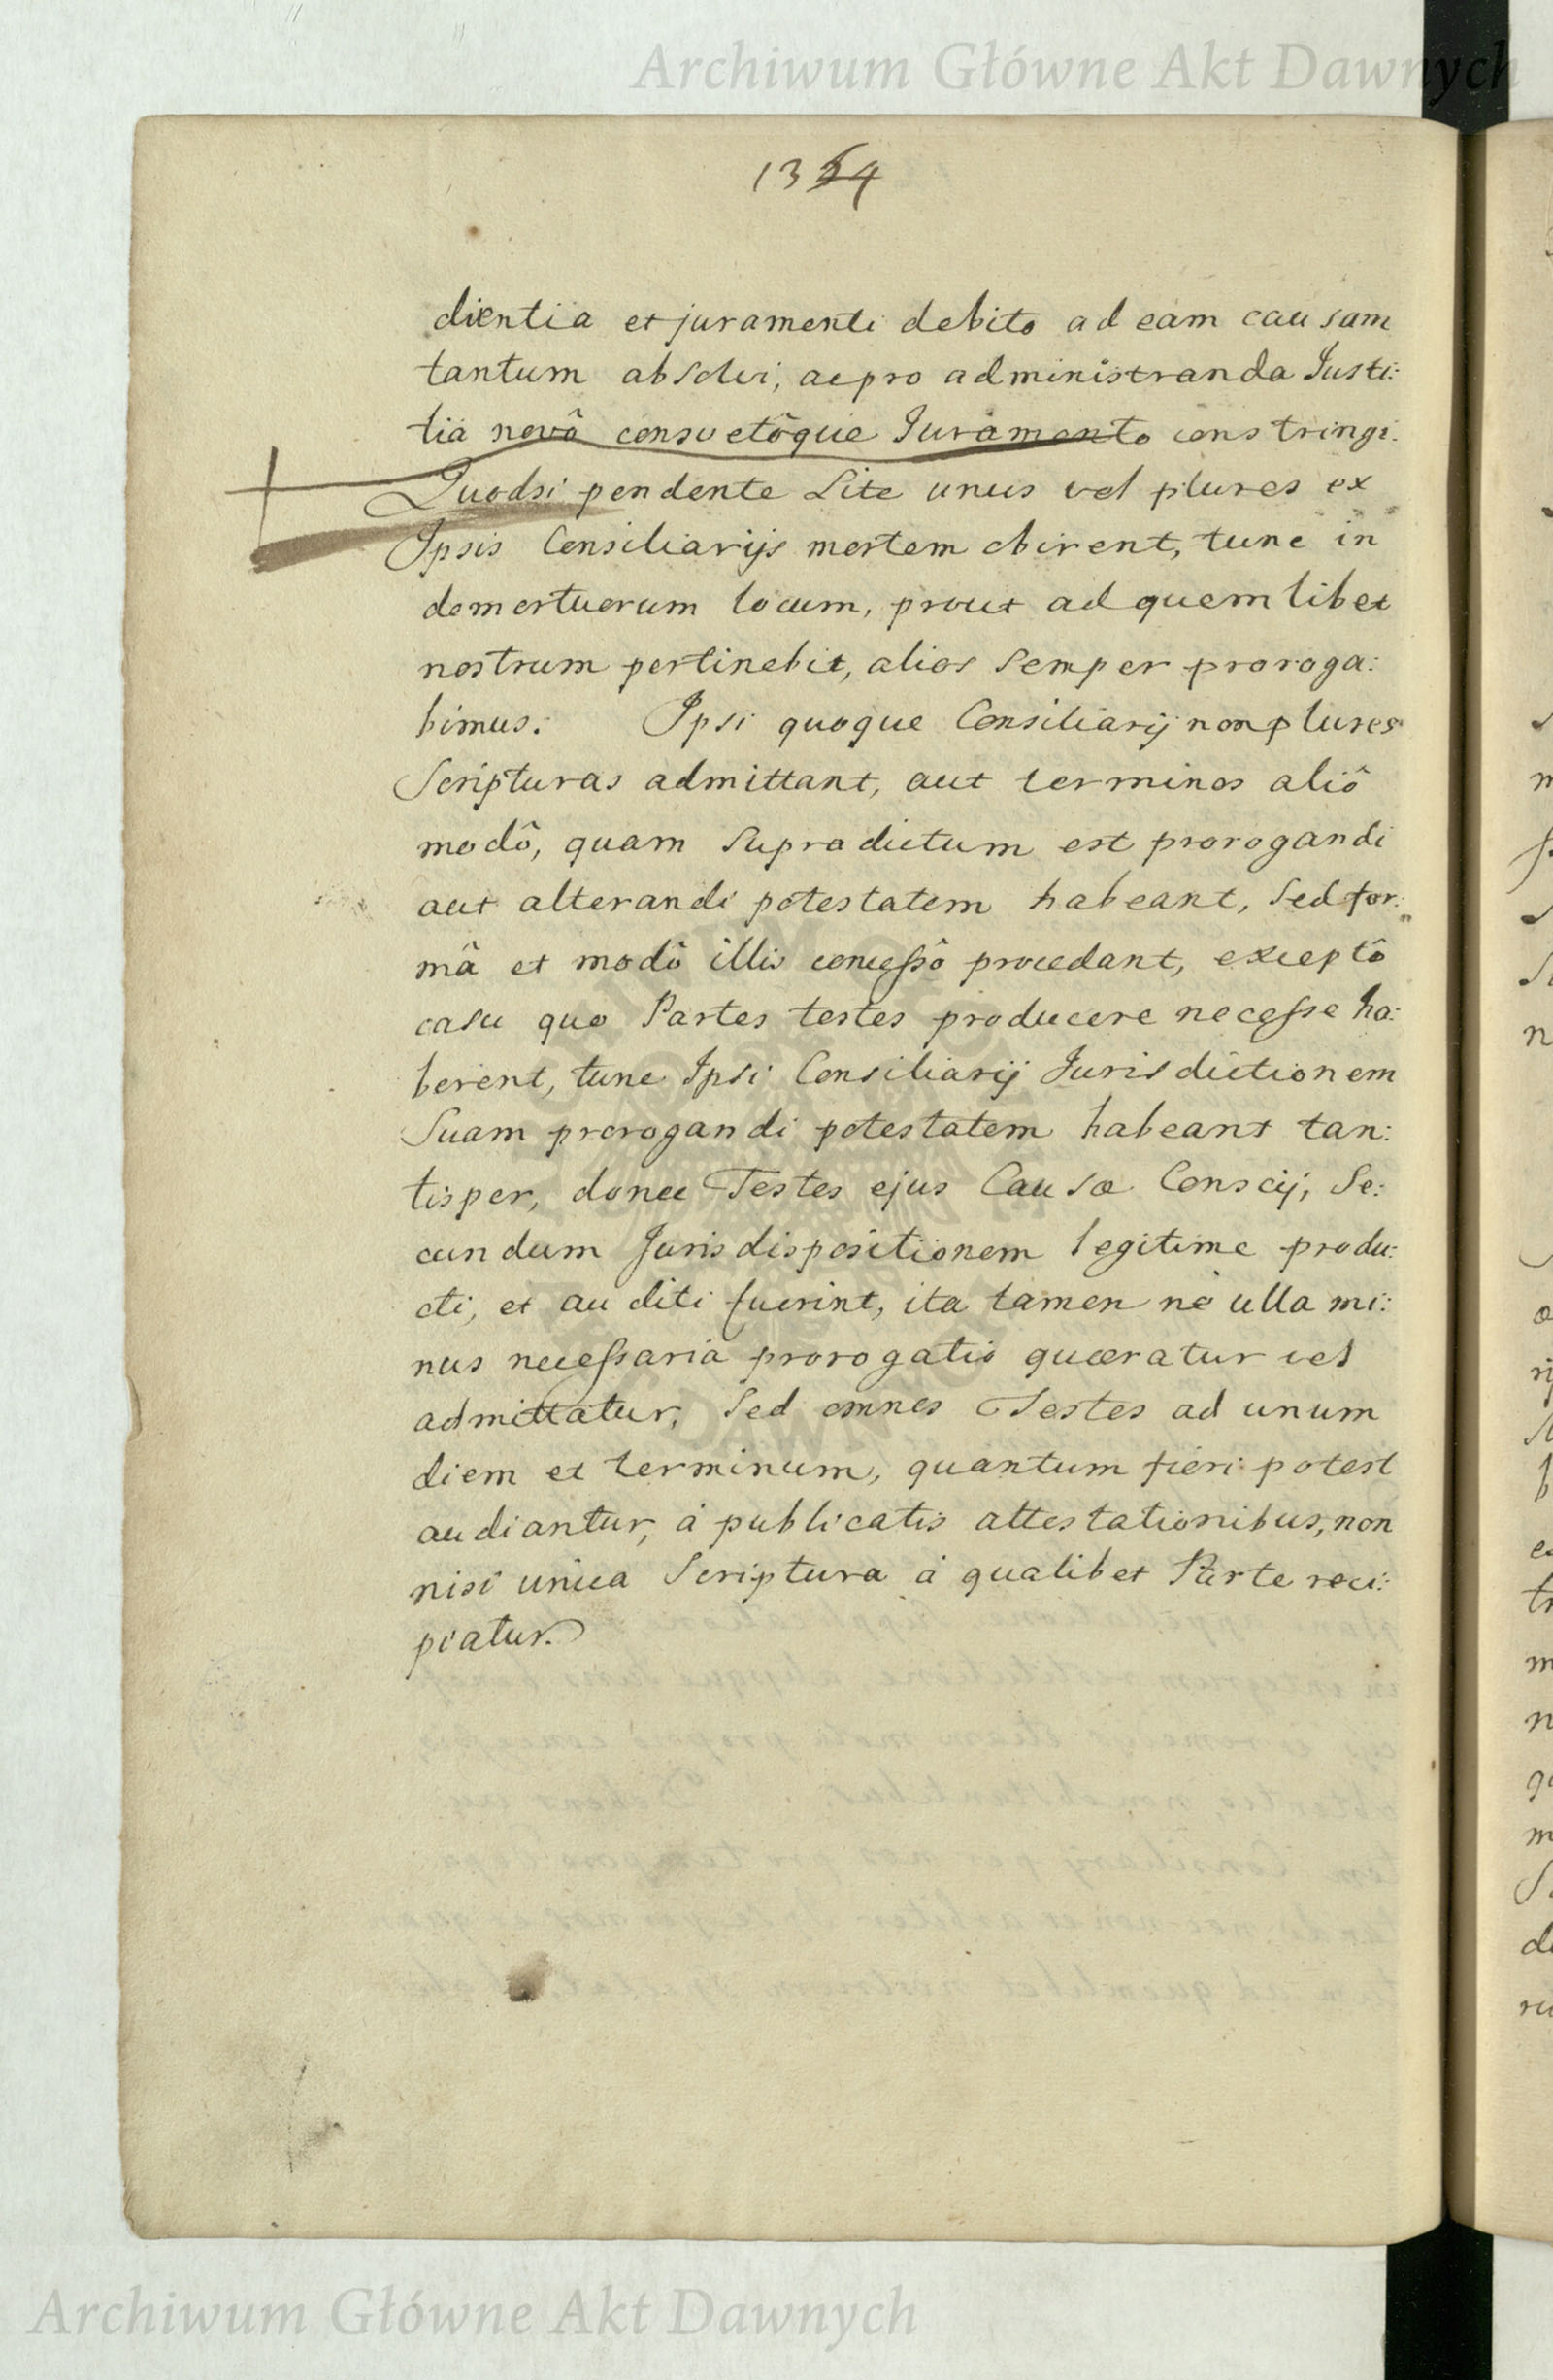 Archiwum Główne Akt Dawnych
1354
dientia et juramenti debito ad eam causam
tantum absolvi, ac pro administranda Justi:
tia novô consvetôque Juramento constringi.
Quodsi pendente Lite unus vel plures ex
Ipsis Consiliarijs mortem obirent, tunc in
demortuorum locum, prout ad quemlibet
nostrum pertinebit, alios Semper proroga:
bimus. Ipsi quoque Consiliarij non plures
Scripturas admittant, aut terminos aliô
modô, quam Supradictum est prorogandi
aut alterandi potestatem habeant, Sed for:
mâ et modô illis concessô procedant, exceptô
casu quo Partes testes producere necesse ha:
berent, tunc Ipsi Consiliarij Jurisdictionem
Suam prorogandi potestatem habeant tan:
tisper, donec Testes ejus Causæ Conscij, Se:
cundum Juris dispositionem legitime produ:
cti, et auditi fuerint, ita tamen ne ulla mi:
nus necessaria prorogatio quæratur vel
admittatur, Sed omnes Testes ad unum
diem et terminum, quantum fieri potest
audiantur, à publicatis attestationibus, non
nisi unica Scriptura à qualibet Parte reci:
piatur.
Archiwum Główne Akt Dawnych